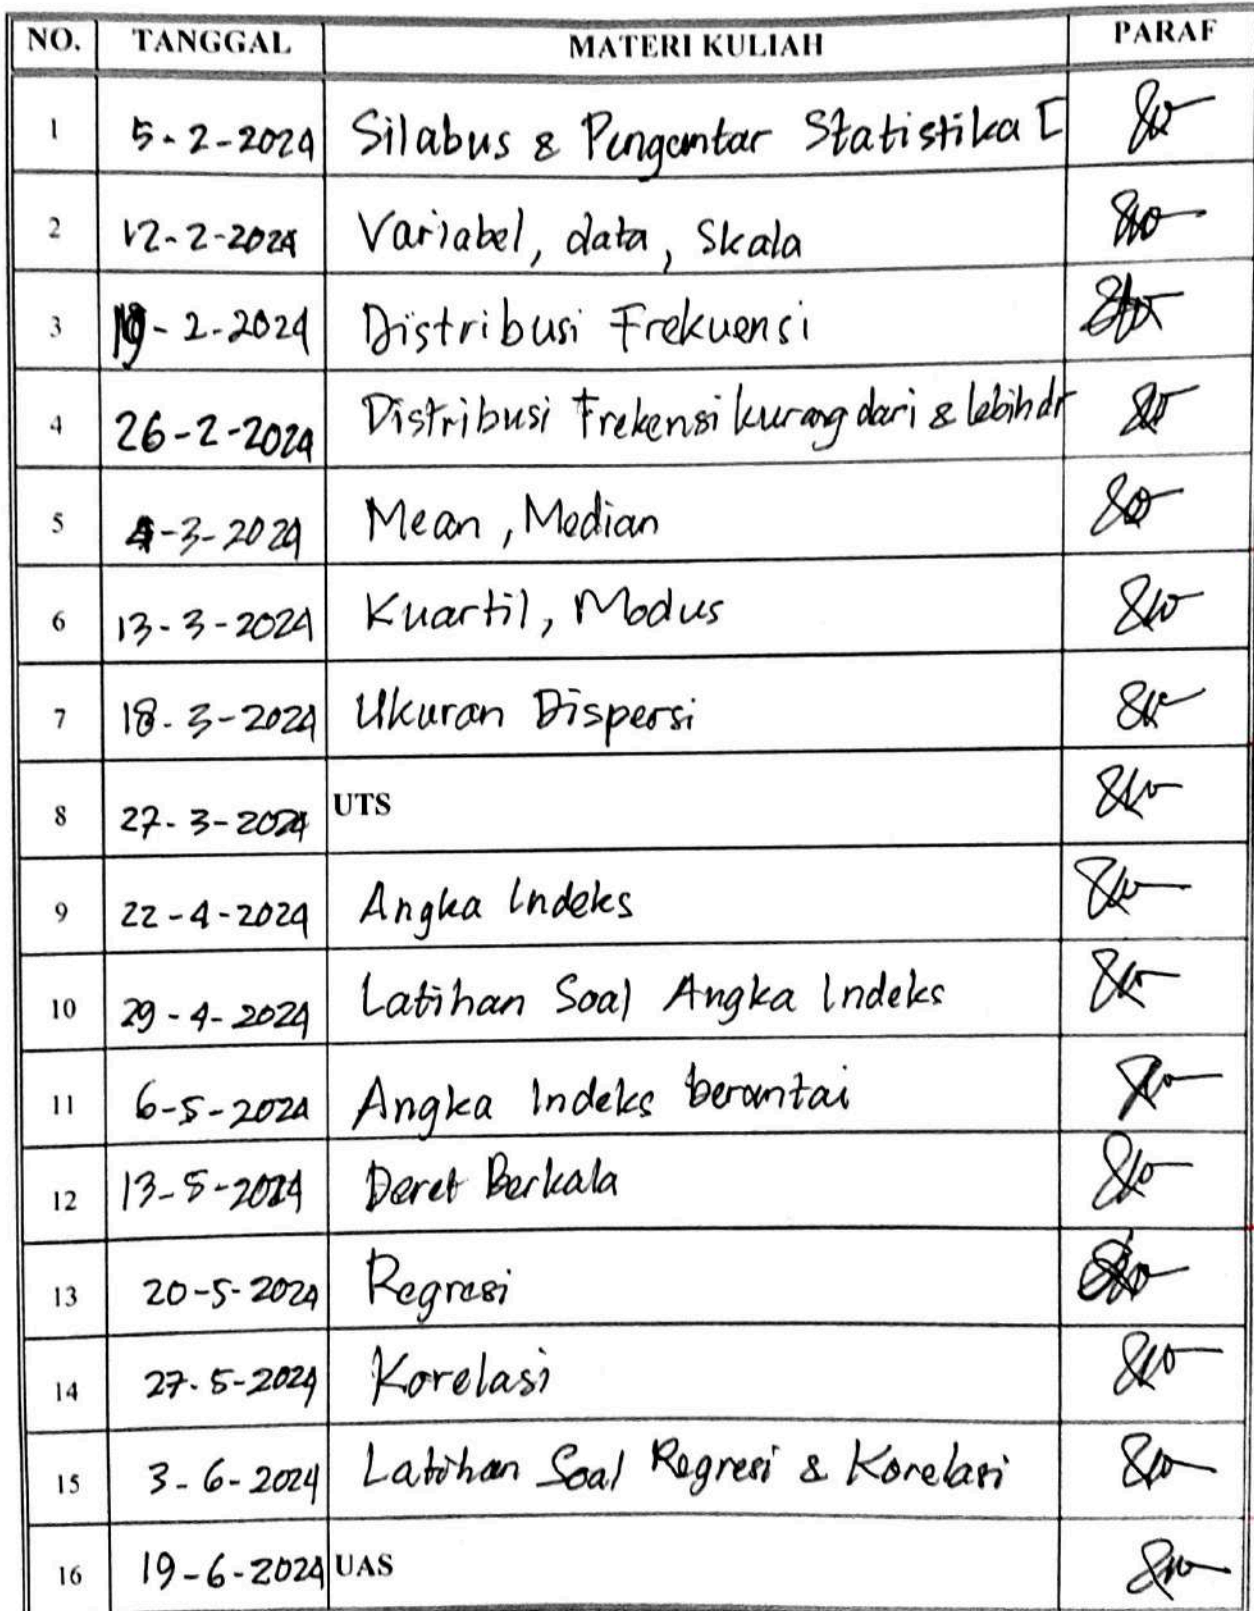 NO. TANGGAL MATERI KULIAH PARAF
1 5-2-2024 Silabus & Pengantar Statistika I
2 12-2-2024 Variabel, data, Skala
3 19-2-2024 Distribusi Frekuensi
4 26-2-2024 Distribusi Frekensi kurang dari & lebih dr
5 4-3-2024 Mean, Median
6 13-3-2024 Kuartil, Modus
7 18-3-2024 Ukuran Dispersi
8 27-3-2024 UTS
9 22-4-2024 Angka Indeks
10 29-4-2024 Latihan Soal Angka Indeks
11 6-5-2024 Angka Indeks berantai
12 13-5-2024 Deret Berkala
13 20-5-2024 Regresi
14 27-5-2024 Korelasi
15 3-6-2024 Latihan Soal Regresi & Korelasi
16 19-6-2024 UAS